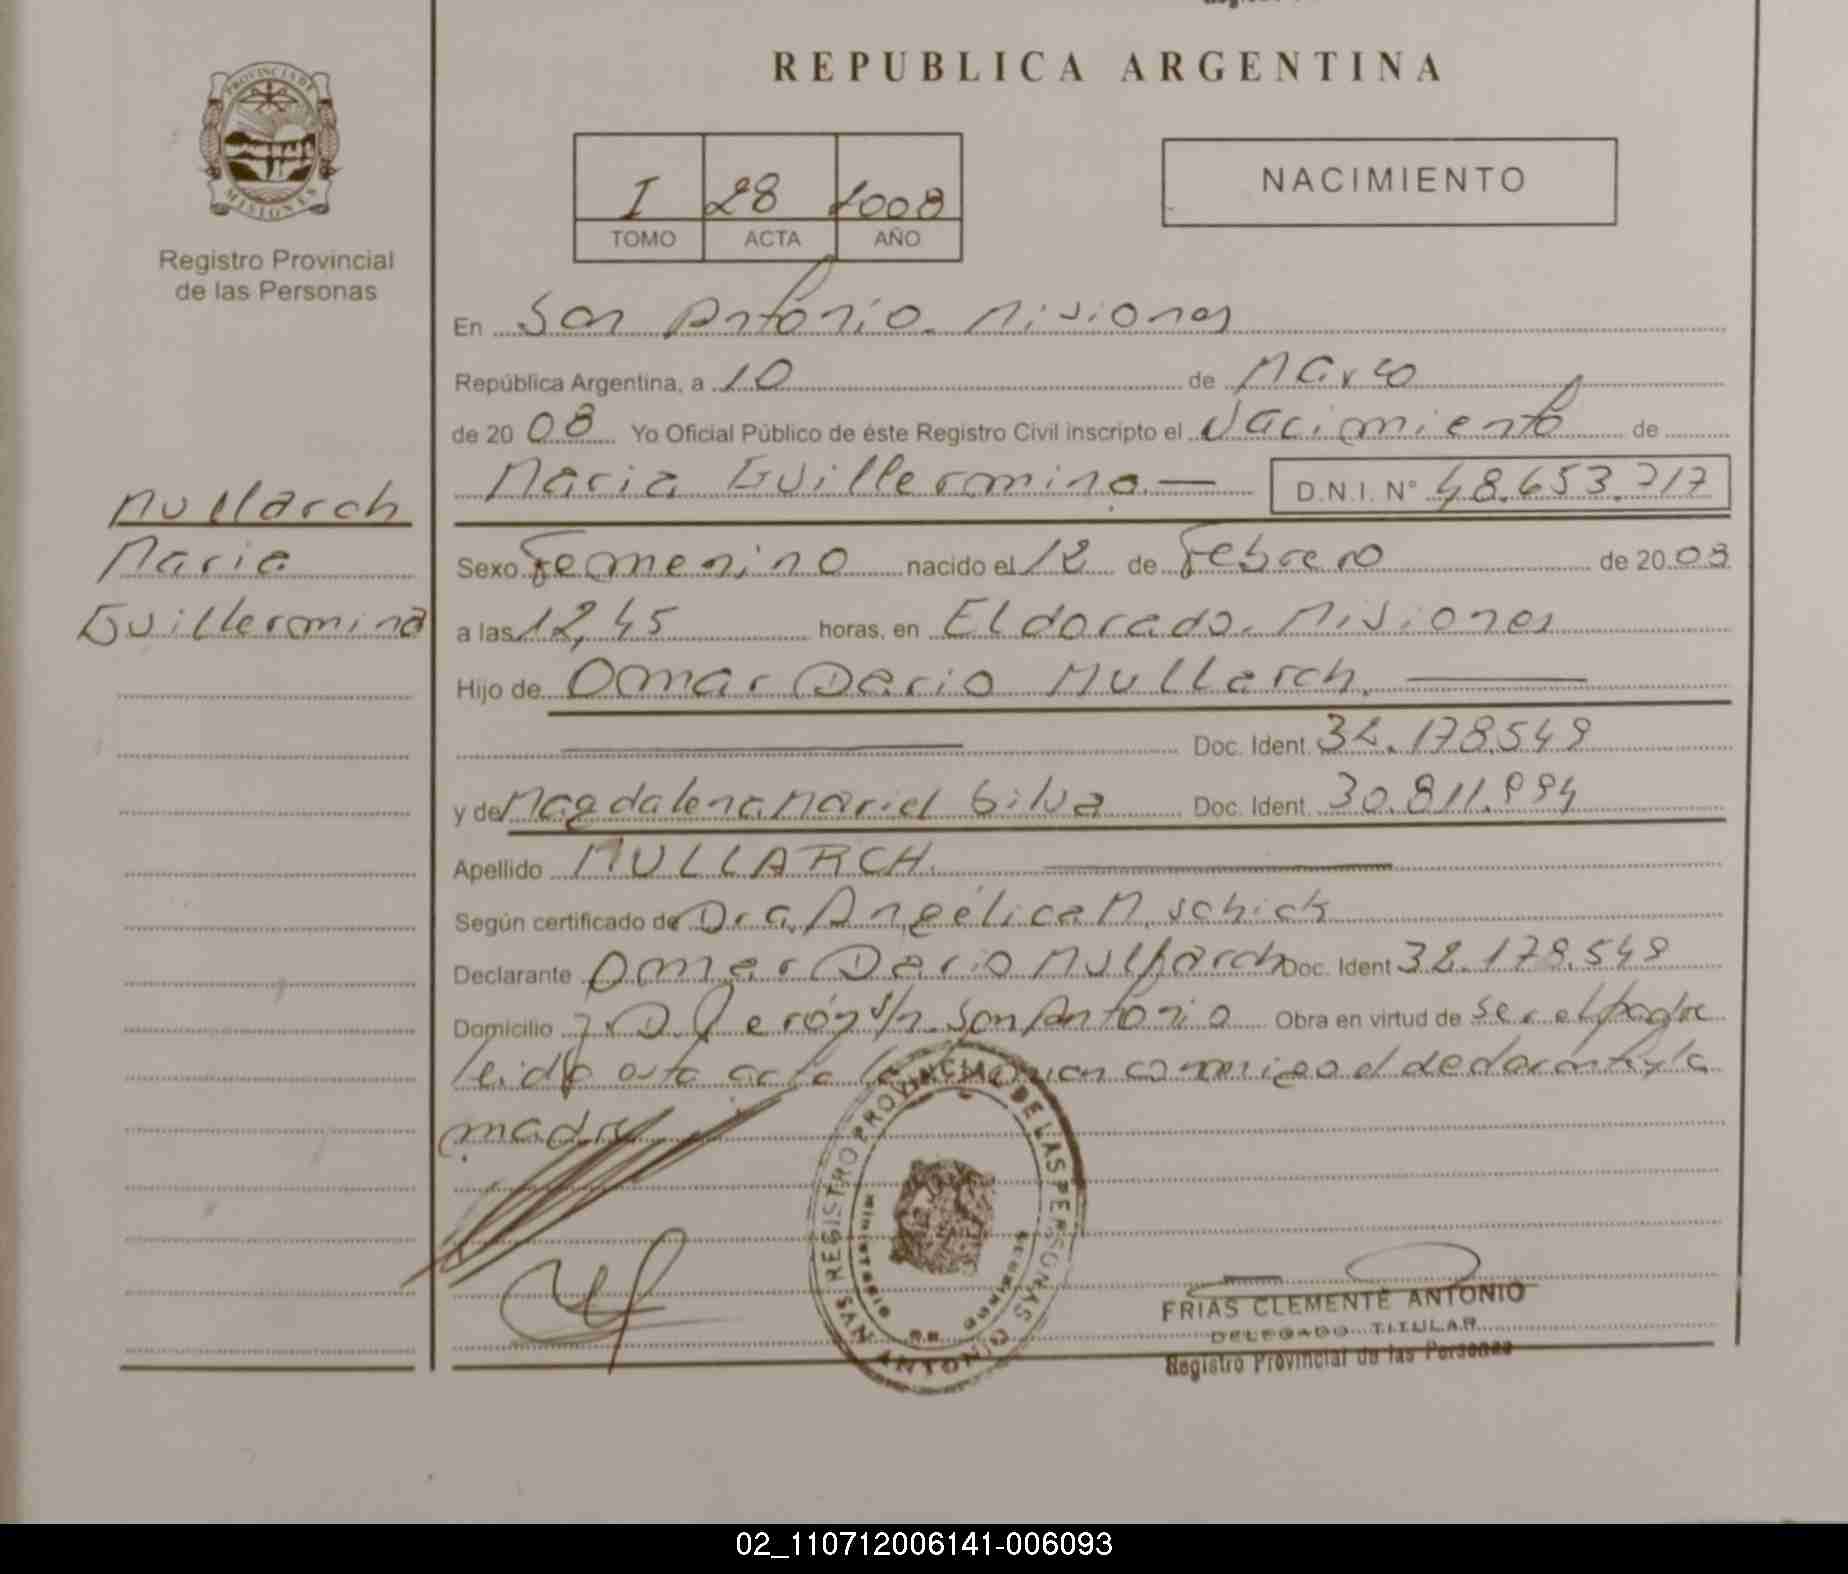 REPUBLICA ARGENTINA
PROVINCIA DE
MISIONES
Registro Provincial
de las Personas
I 28 2008
TOMO ACTA AÑO
NACIMIENTO
En San Antonio. Misiones
República Argentina, a 10 de Marzo
de 20 08 Yo Oficial Público de éste Registro Civil inscripto el Nacimiento de
Maria Guillermina.— D.N.I. N° 48.653.717
Mullarch
Maria
Guillermina
Sexo Femenino nacido el 12 de Febrero de 20 08
a las 12,45 horas, en Eldorado. Misiones
Hijo de Omar Dario Mullarch.
Doc. Ident. 32.178.549
y de Magdalena Mariel Silva Doc. Ident. 30.811.994
Apellido MULLARCH.
Según certificado de Dra. Angélica M. Schick
Declarante Omar Dario Mullarch Doc. Ident 32.178.549
Domicilio J. D. Perón s/n. San Antonio Obra en virtud de ser el padre
leida esta acta la conmigo el declarante y la
madre
REGISTRO PROVINCIAL DE LAS PERSONAS
SAN ANTONIO
FRIAS CLEMENTE ANTONIO
DELEGADO TITULAR
Registro Provincial de las Personas
02_110712006141-006093